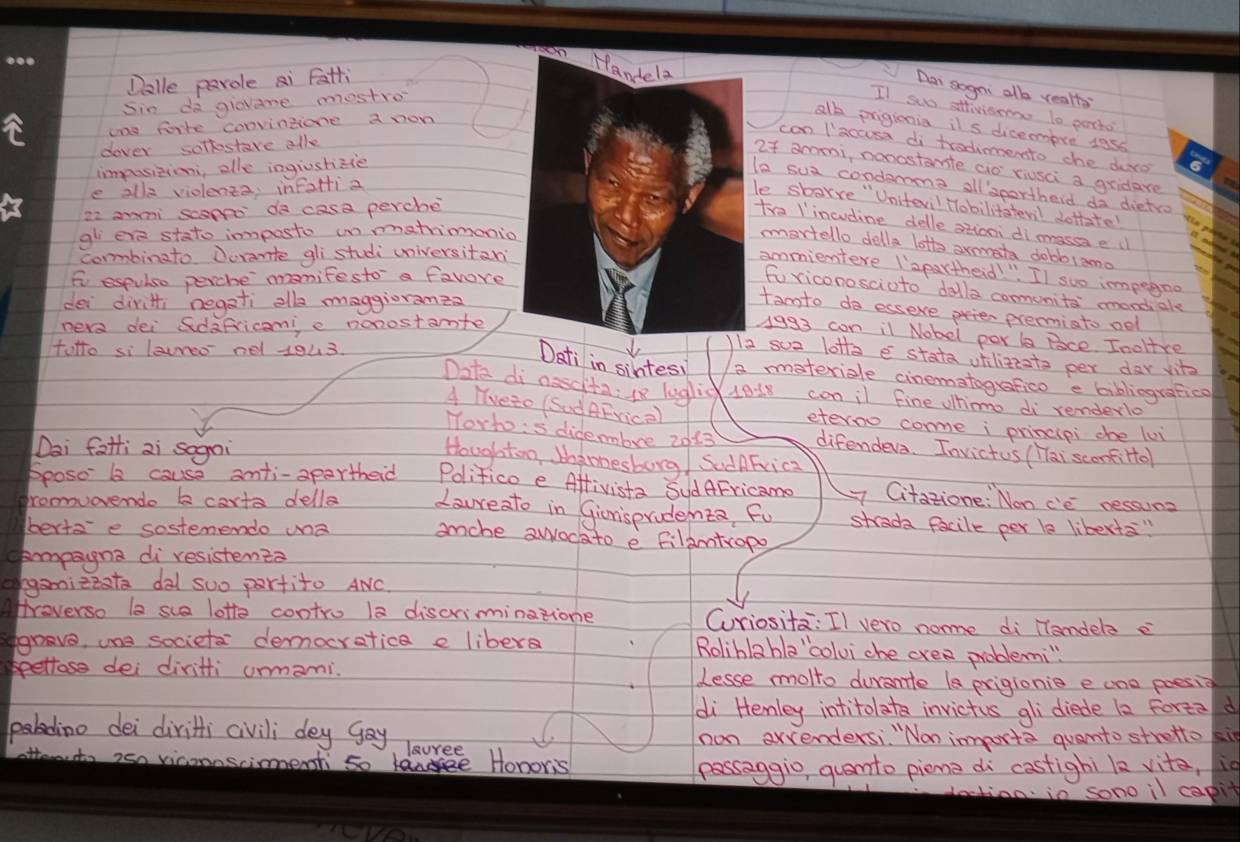 Mandela
Dalle parole ai fatti
Sin da giovane mostrò
una forte convinzione a non
dover sottostare alle
imposizioni, alle ingiustizie
e alla violenza, infatti a
22 anni scappò da casa perchè
gli era stato imposto un matrimonio
combinato Durante gli studi universitari
fu espulso perchè manifestò a favore
dei diritti negati alla maggioranza
nera dei Sudafricani, e nonostante
tutto si laureò nel 1943.
Dai sogni alla realtà
Il suo attivismo lo portò
alla prigionia il 5 dicembre 1956
con l'accusa di tradimento che durò
27 anni, nonostante ciò riuscì a gridare
la sua condanna all'apartheid da dietro
le sbarre "Unitevi! Mobilitatevi! Lottate!
tra l'incudine delle azioni di massa e il
martello della lotta armata dobbiamo
annientare l'apartheid!". Il suo impegno
fu riconosciuto dalla comunità mondiale
tanto da essere premiato nel
1993 con il Nobel per la Pace. Inoltre
la sua lotta è stata utilizzata per dar vita
a materiale cinematografico e bibliografico
con il fine ultimo di renderlo
eterno come i principi che lui
difendeva. Invictus (Mai sconfitto)
Dati in sintesi
Data di nascita: 18 luglio 1918
A Mvezo (SudAfrica)
Morto: 5 dicembre 2013
Houghton, Johannesburg, SudAfrica
Politico e Attivista SudAfricano
Laureato in Giurisprudenza, Fu
anche avvocato e filantropo
Dai fatti ai sogni
Sposò la causa anti-apartheid
promuovendo la carta della
libertà e sostenendo una
campagna di resistenza
organizzata dal suo partito ANC.
Attraverso la sua lotta contro la discriminazione
sognava una società democratica e libera
rispettosa dei diritti unmani.
Citazione: "Non c'è nessuna
strada facile per la libertà"
Curiosità: Il vero nome di Mandela è
Rolihlahla "colui che crea problemi".
Lesse molto durante la prigionia e una poesia
di Henley intitolata invictus gli diede la forza d
non arrendersi. "Non importa quanto stretto sia
passaggio, quanto piena di castighi la vita, io
io sono il capit
paladino dei diritti civili dey Gay
250 riconoscimenti 50 lauree Honoris
6